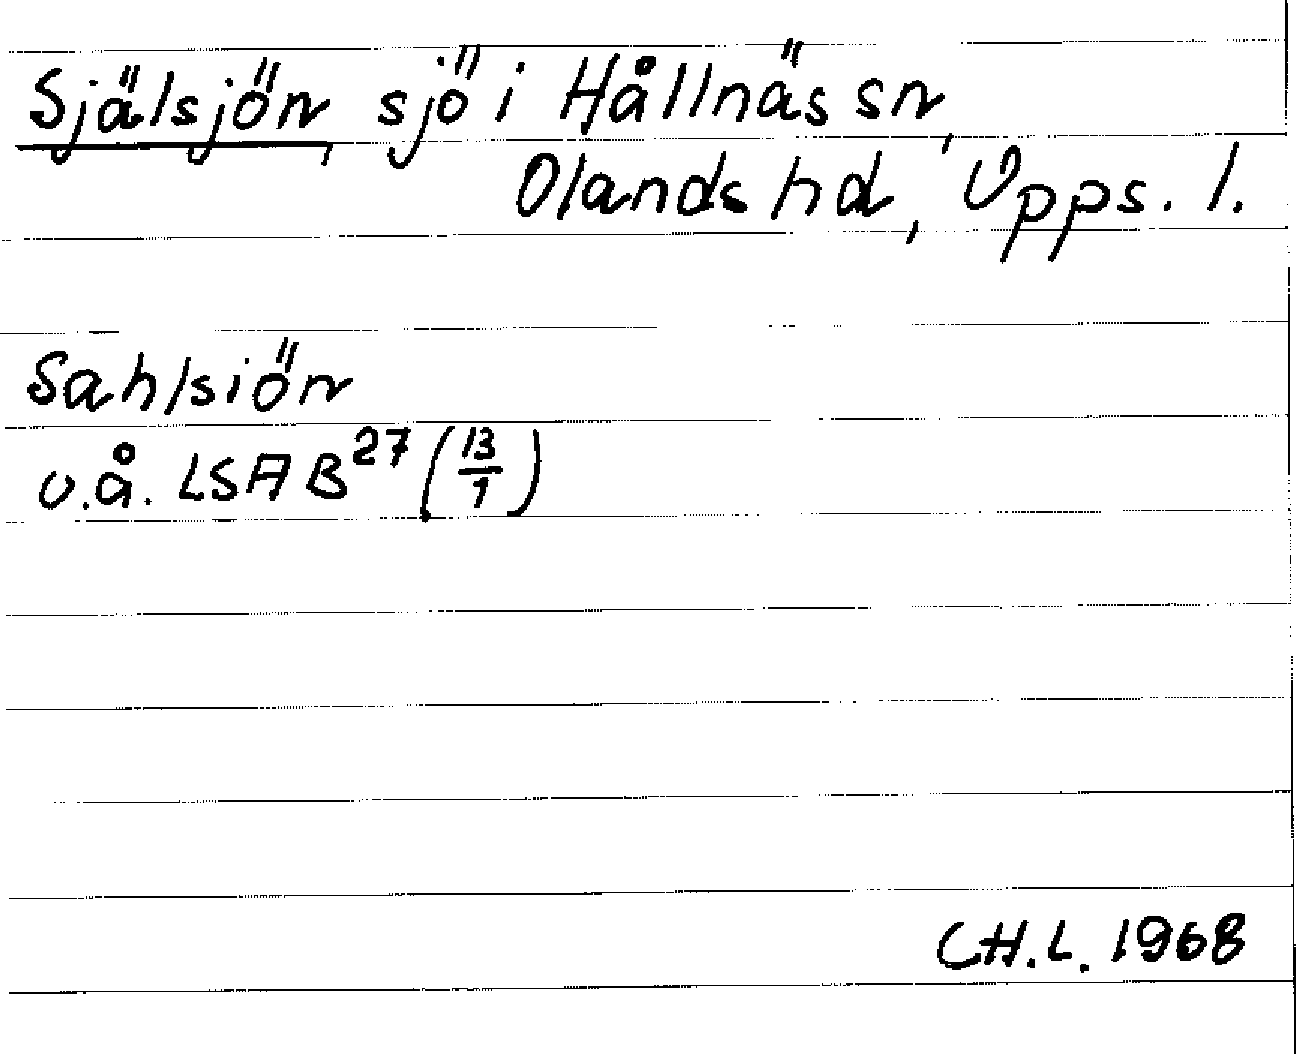 Själsjön, sjö i Hållnäs sn,
Olands hd, Upps. l.
Sahlsiön
u.å. LSA B²⁷ (13/1)
CH.L. 1968